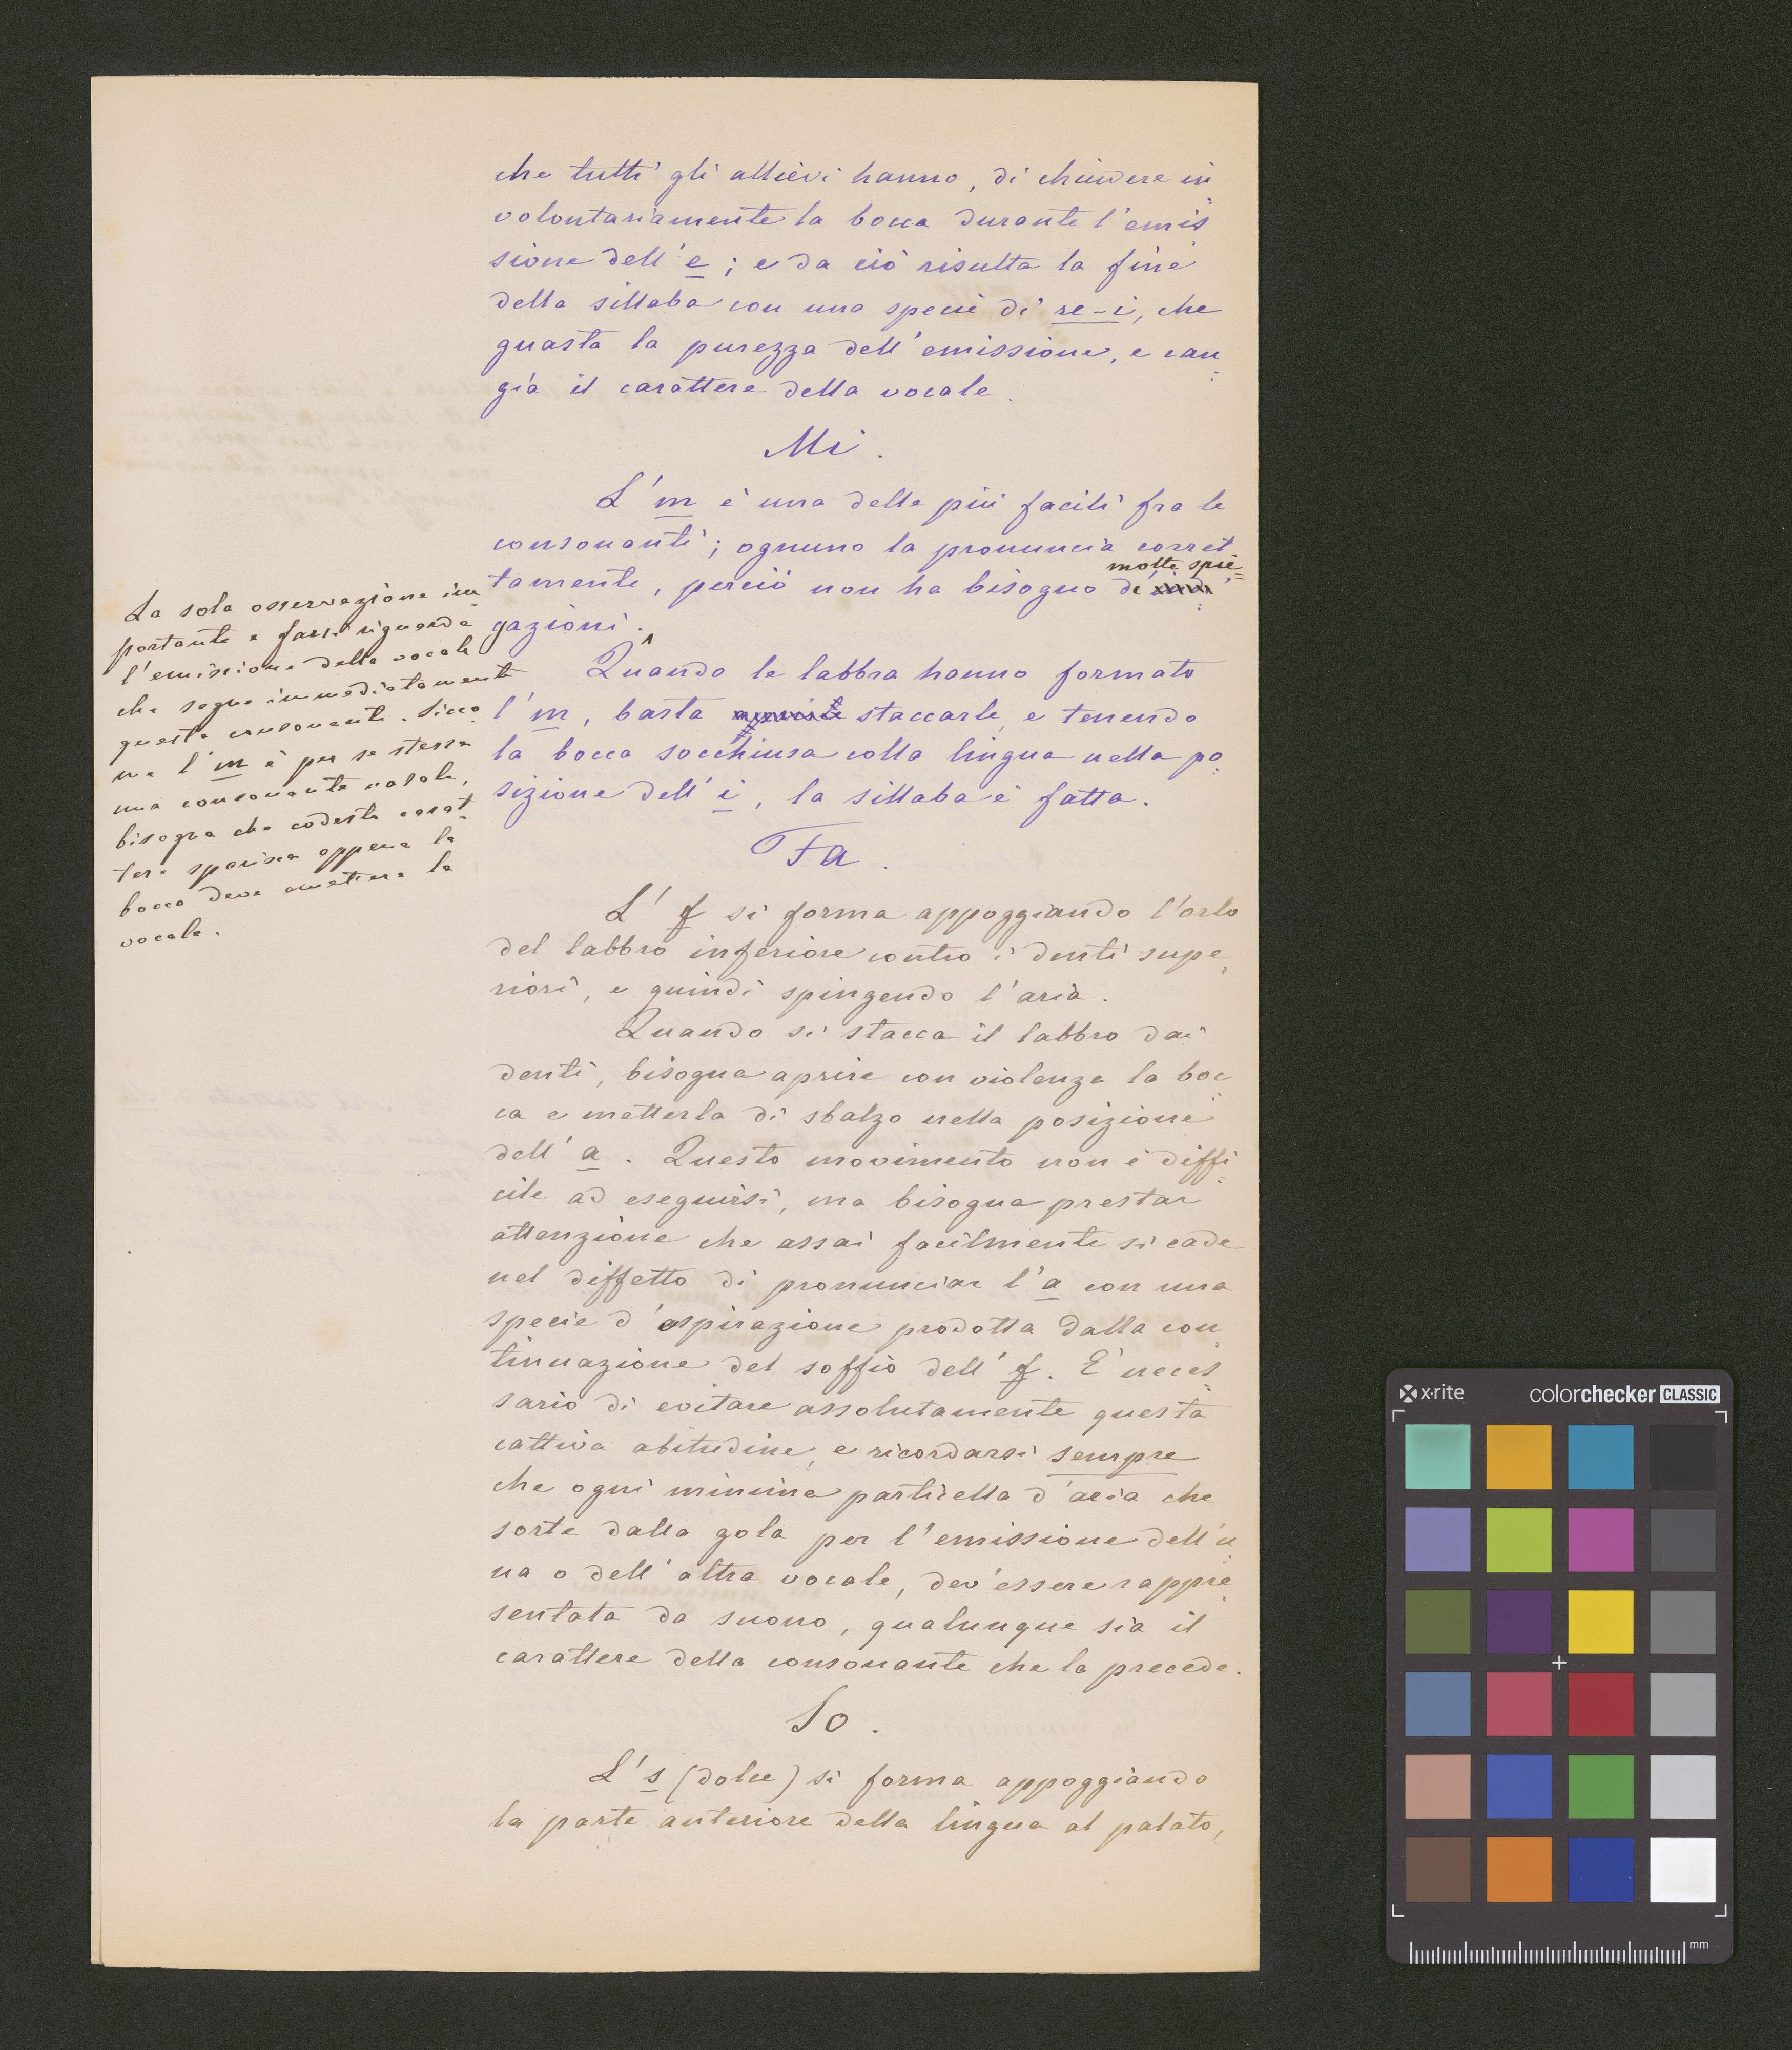 che tutti gli allievi hanno, di chiudere in
volontariamente la bocca durante l'emis
sione dell'e; e da ciò risulta la fine
della sillaba con una specie di re-i, che
guasta la purezza dell'emissione, e can
gia il carattere della vocale.
Mi.
L'm è una delle più facili fra le
consonanti; ognuno la pronuncia corret
tamente, perciò non ha bisogno di molte spie=
gazioni.
Quando le labbra hanno formato
l'm, basta staccarle, e tenendo
la bocca socchiusa colla lingua nella po
sizione dell'i, la sillaba è fatta.
La sola osservazione im
portante a farsi riguarda
l'emissione della vocale
che segue immediatamente
questa consonante. Sicco
me l'm è per se stessa
una consonante nasale,
bisogna che codesto carat
tere sparisca appena la
bocca deve emettere la
vocale.
Fa.
L'f si forma appoggiando l'orlo
del labbro inferiore contro i denti supe
riori, e quindi spingendo l'aria.
Quando si stacca il labbro dai
denti, bisogna aprire con violenza la boc
ca e metterla di sbalzo nella posizione
dell'a. Questo movimento non è diffi
cile ad eseguirsi, ma bisogna prestar
attenzione che assai facilmente si cade
nel diffetto di pronunciar l'a con una
specie d'aspirazione prodotta dalla con
tinuazione del soffio dell'f. È neces
sario di evitare assolutamente questa
cattiva abitudine, e ricordarsi sempre
che ogni minima particella d'aria che
sorte dalla gola per l'emissione dell'u
na o dell'altra vocale, dev'essere rappre
sentata da suono, qualunque sia il
carattere della consonante che la precede.
So.
L's (dolce) si forma appoggiando
la parte anteriore della lingua al palato,
x·rite colorchecker CLASSIC
mm